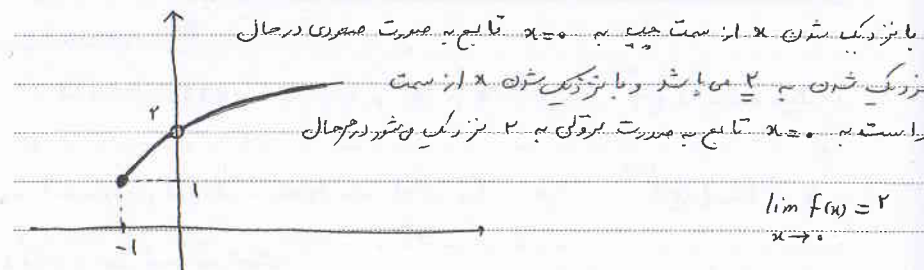 با نزدیک شدن x از سمت چپ به x=۰ تابع به صورت صعودی درحال
نزدیک شدن به ۲ می باشد و با نزدیک شدن x از سمت
راست به x=۰ تابع به صورت نزولی به ۲ نزدیک می شود درهرحال
lim f(x) = ۲
x→۰
۲
۱
-۱